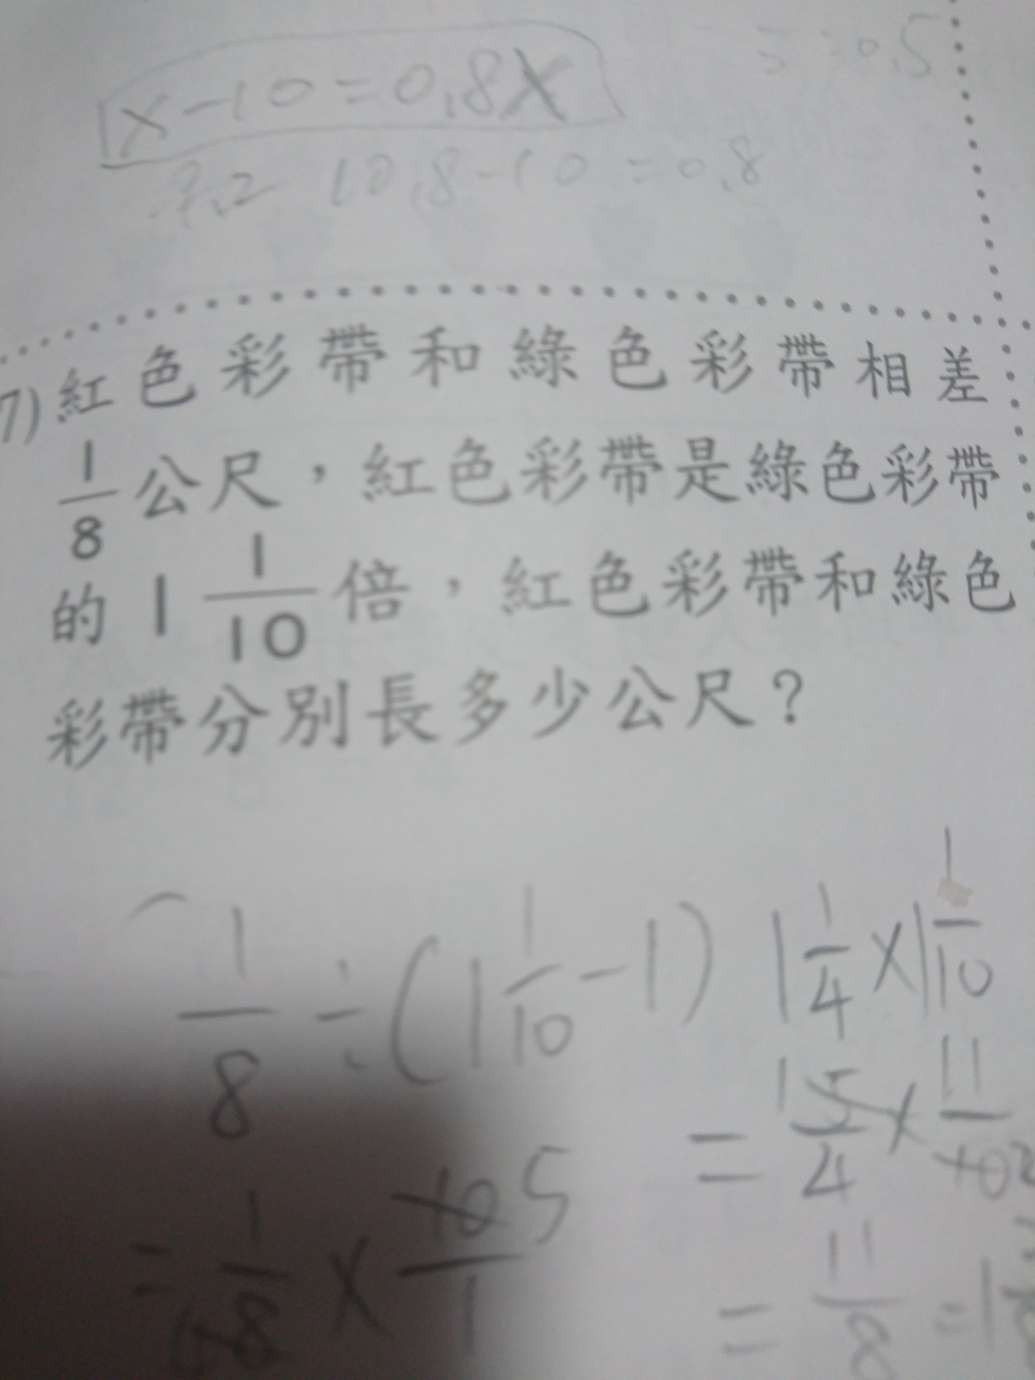 = 0.5
x-10=0.8x
10.8-10=0.8
7)紅色彩帶和綠色彩帶相差
1/8公尺，紅色彩帶是綠色彩帶
的1 1/10倍，紅色彩帶和綠色
彩帶分別長多少公尺？
1/8÷(1 1/10-1)
=1/8×10/1 5
1 1/4×1 1/10
=5/4×11/10
=11/8=1